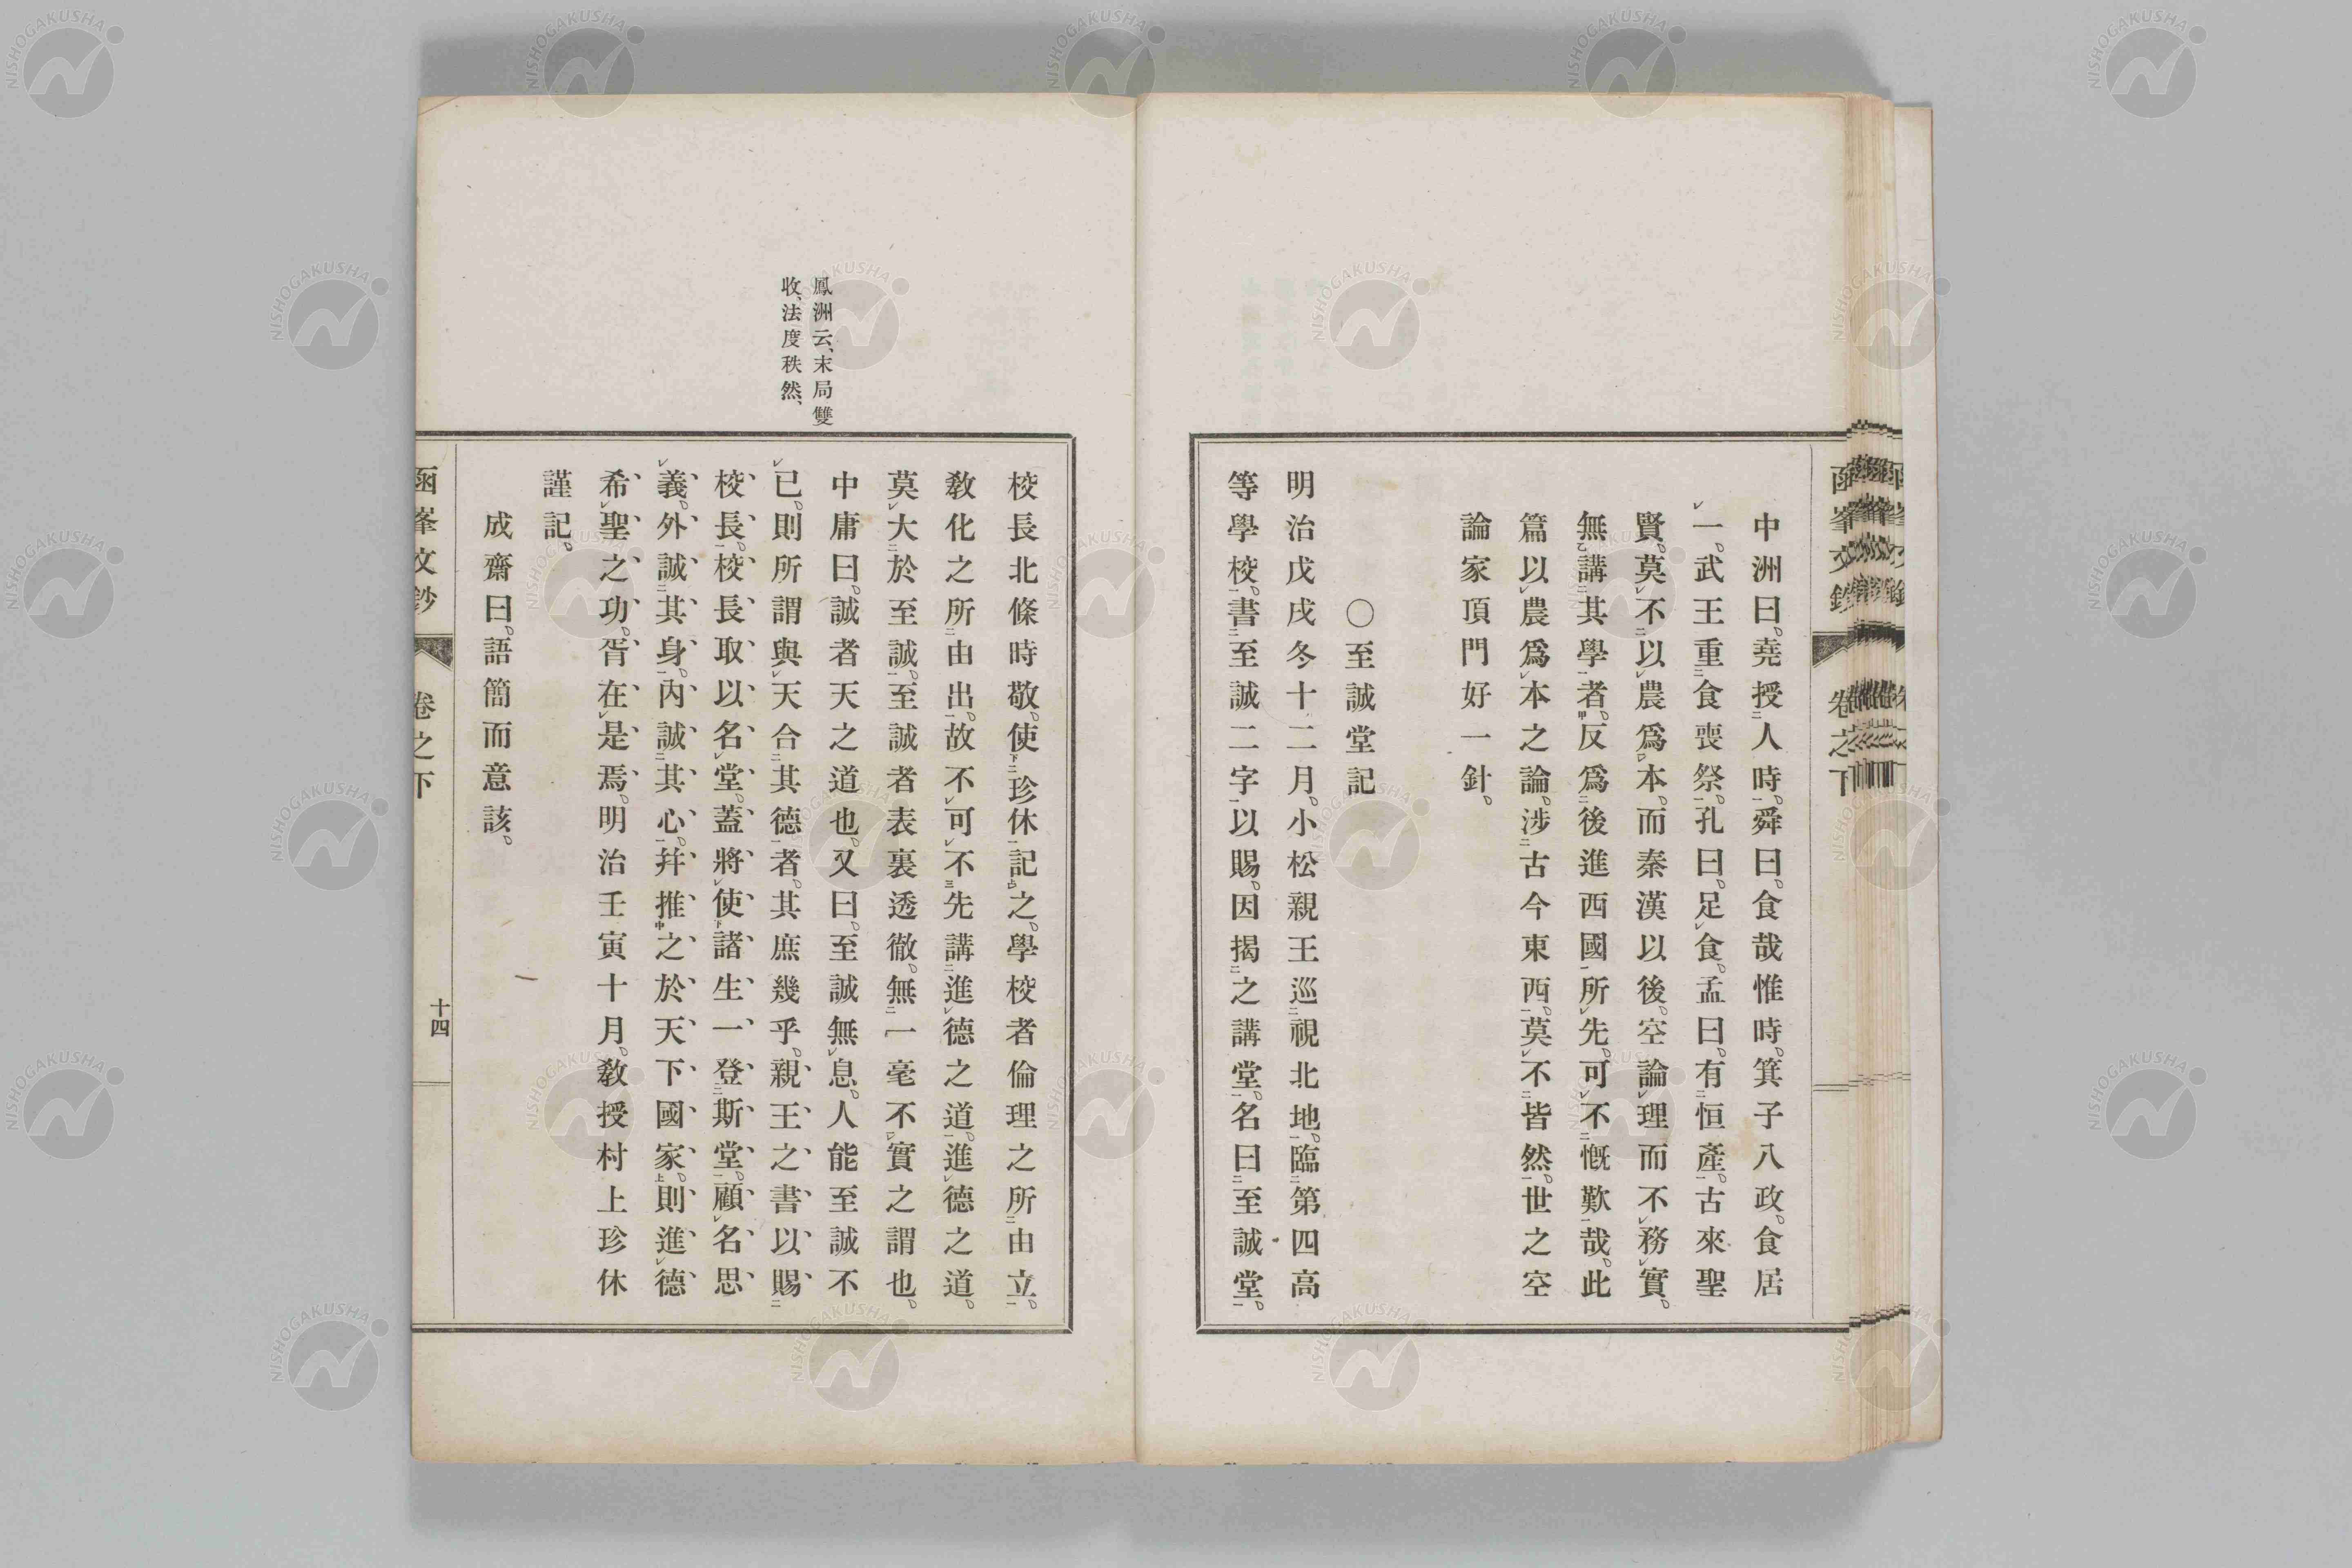 中洲曰。堯授人時。舜曰。食哉惟時。箕子八政。食居
一。武王重食喪祭。孔曰。足食。孟曰。有恒產。古來聖
賢。莫不以農爲本。而秦漢以後。空論理而不務實。
無講其學者。反爲後進西國所先。可不慨歎哉。此
篇以農爲本之論。涉古今東西。莫不皆然。世之空
論家頂門好一針。
〇至誠堂記
明治戊戌冬十二月。小松親王巡視北地。臨第四高
等學校。書至誠二字以賜。因揭之講堂。名曰至誠堂。
校長北條時敬。使珍休記之。學校者倫理之所由立。
敎化之所由出。故不可不先講進德之道。進德之道。
莫大於至誠。至誠者表裏透徹。無一毫不實之謂也。
中庸曰。誠者天之道也。又曰。至誠無息。人能至誠不
已。則所謂與天合其德者。其庶幾乎。親王之書以賜
校長。校長取以名堂。蓋將使諸生一登斯堂。顧名思
義。外誠其身。內誠其心。幷推之於天下國家。則進德
希聖之功。胥在是焉。明治壬寅十月。敎授村上珍休
謹記。
成齋曰。語簡而意該。
鳳洲云、末局雙
收、法度秩然、
函峯文鈔
卷之下
十四
函峯文鈔
卷之下
NISHOGAKUSHA